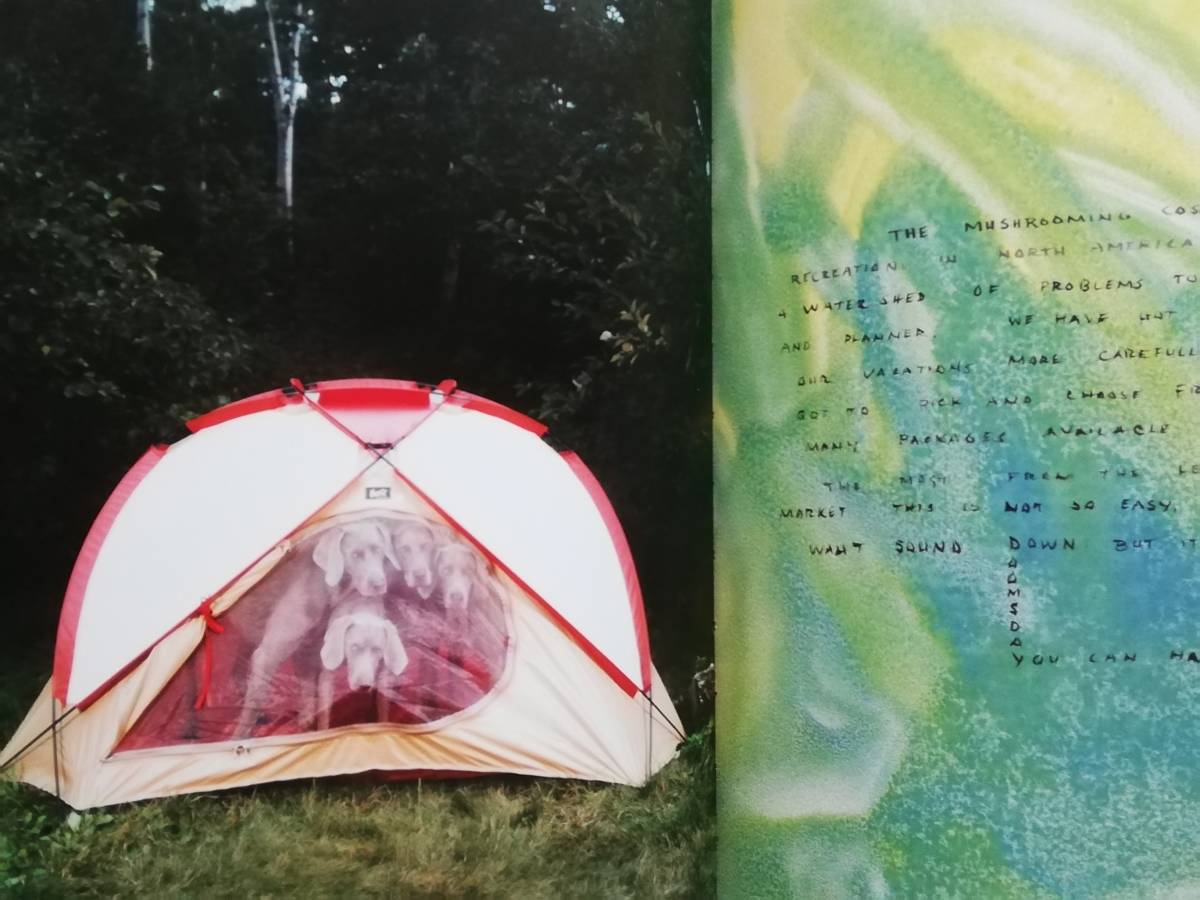 THE MUSHROOMING COS
RECREATION IN NORTH AMERICA
A WATERSHED OF PROBLEMS TO
AND PLANNED. WE HAVE
OUR VACATIONS MORE CAREFULL
GOT TO PICK AND CHOOSE
MANY PACKAGES AVAILABLE
THE MOST FROM THE LE
MARKET THIS IS NOT SO EASY.
WANT SOUND DOWN BUT IT
O
O
M
S
D
A
YOU CAN HA